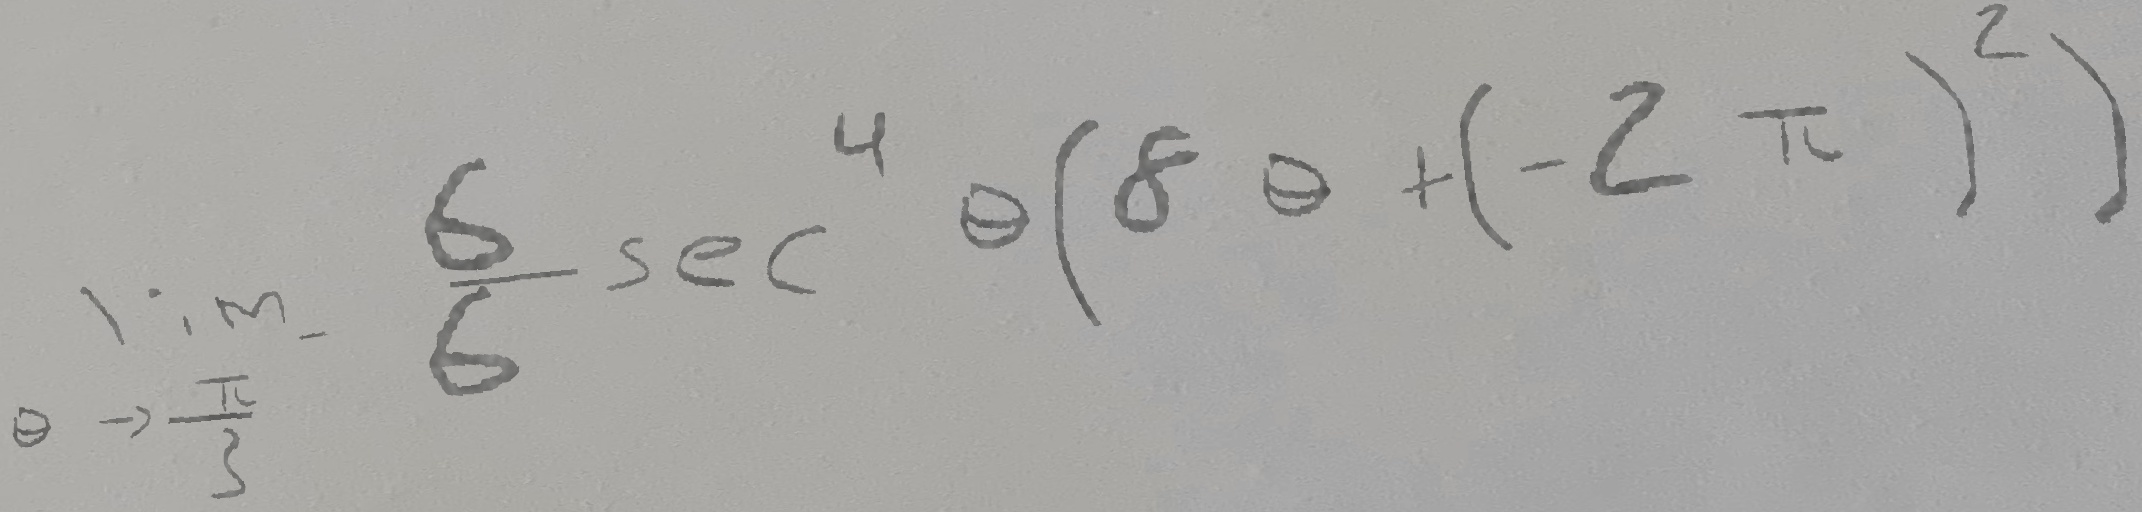 \lim_{\theta \to \frac{\pi}{3}^{-}} \frac{6}{6} \sec^4 \theta (8 \theta + (-2 \pi)^2)